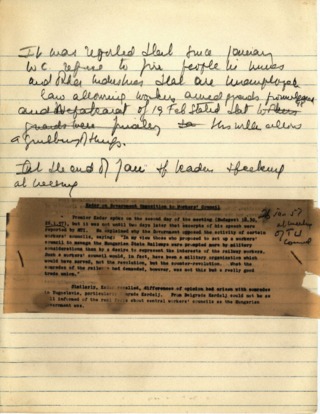 It was reported that since January
W.C. refuse to fire people in mines
and other industries that are unemployed
Law allowing workers armed guards
of 19 Feb stated that
were
of things.
At the end of Jan leader speaking
at meeting
Kadar on Government Opposition to Workers' Council
Premier Kadar spoke on the second day of the meeting (Budapest
but it was not until two days later that excerpts of his speech were
reported by MTI. He explained why the Government opposed the activity of certain
workers' councils, saying: "In my view those who proposed to set up a workers'
council to manage the Hungarian State Railways were prompted more by military
considerations than by a desire to represent the interests of the railway workers.
Such a workers' council would, in fact, have been a military organisation which
would have served, not the revolution, but the counter-revolution. What the
comrades of the railways had demanded, however, was not this but a really good
trade union."
Similarly, Kadar recalled, differences of opinion had arisen with comrades
in Yugoslavia, particularly Kardelj. From Belgrade Kardelj could not be as
well informed of the real facts about central workers' councils as the Hungarian
Government was.
Jan 57
at meeting
of T.U.
Council